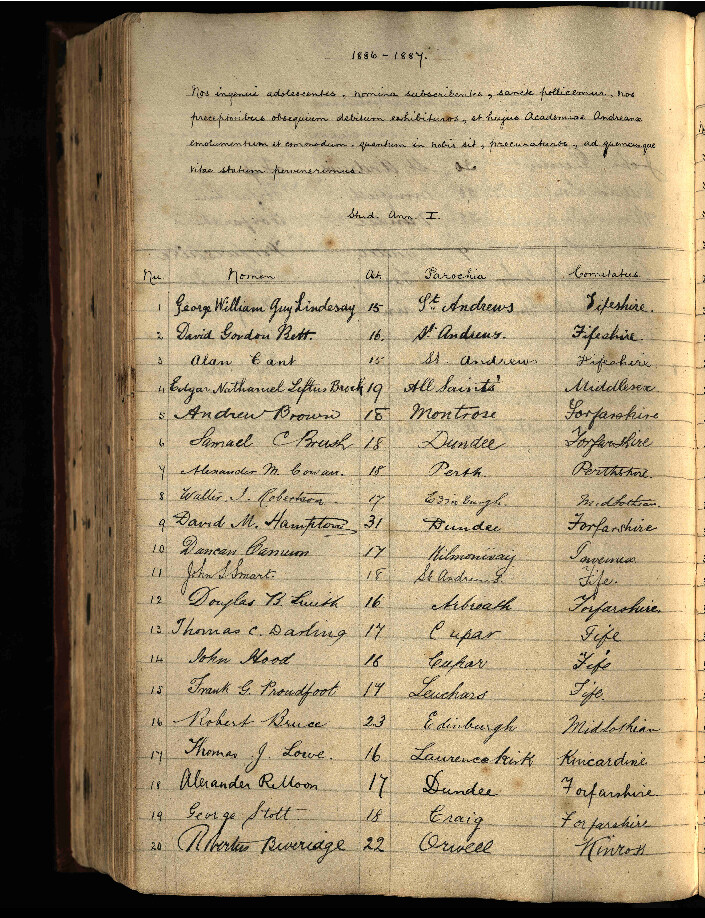 1886 - 1887.
Nos ingenui adolescentes, nomina subscribentes, sancte pollicemur, nos
preceptoribus obsequium debitum exhibituros, et hujus Academiae Andreanae
emolumentum et commodum, quantum in nobis sit, procuraturos, ad quemcunque
vitae statum pervenerimus.
Stud. Ann. I.
Nu. Nomen Aet. Parochia Comitatus
1 George William Guy Lindesay 15 St. Andrews Fifeshire.
2 David Gordon Bett. 16. St Andrews. Fifeshire.
3 Alan Cant 15 St. Andrews Fifeshire
4 Edgar Nathaniel Loftus Brock 19 All Saints' Middlesex
5 Andrew Brown 18 Montrose Forfarshire
6 Samuel C Brush 18 Dundee Forfarshire
7 Alexander M. Cowan. 18 Perth. Perthshire.
8 Walter J. Robertson 17 Edinburgh. Midlothian.
9 David M. Hampton 31 Dundee Forfarshire
10 Duncan Cameron 17 Kilmonivaig Inverness
11 John S. Smart. 18 St Andrews. Fife.
12 Douglas B. Smith 16 Arbroath Forfarshire.
13 Thomas C. Darling 17 Cupar Fife
14 John Hood 16 Cupar Fife
15 Frank G. Proudfoot 17 Leuchars Fife.
16 Robert Bruce 23 Edinburgh Midlothian
17 Thomas J. Lowe. 16 Laurencekirk Kincardine
18 Alexander R. Moon 17 Dundee Forfarshire.
19 George Stott 18 Craig Forfarshire
20 Robertus Beveridge 22 Orwell Kinross